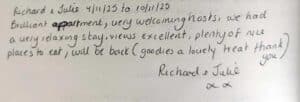 Richard & Julie 4/11/25 to 10/11/25
Brilliant apartment, very welcoming hosts, we had
a very relaxing stay, views excellent, plenty of nice
places to eat, will be back (goodies a lovely treat thank
you)
Richard & Julie
x x